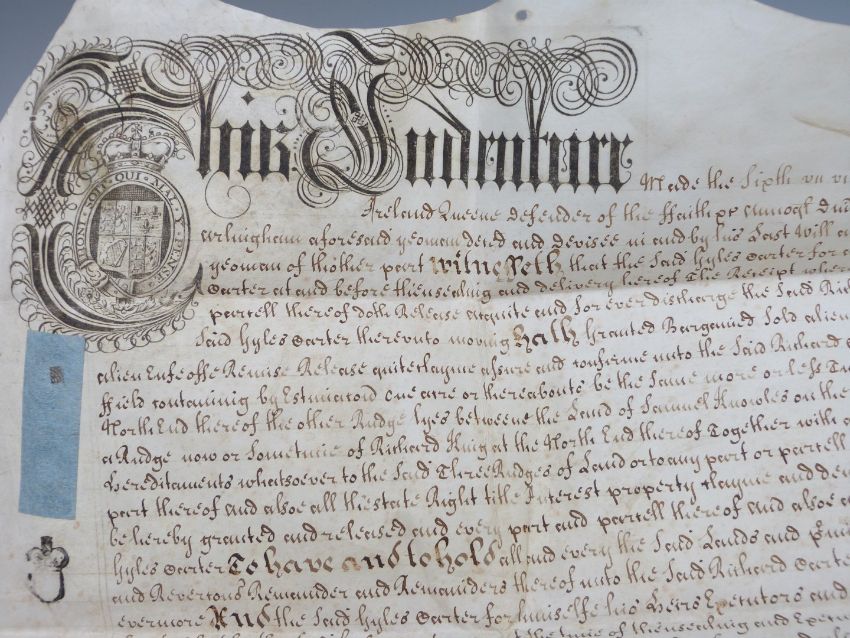 This Indenture Made the Sixth
HONI SOIT QUI MAL Y PENSE
Ireland Queene defender of the ffaith &c Annoq Dni
aforesaid yeoman dend and devisee in and by the Last Will
yeoman of thother part Witnesseth that the said Gyles Carter for
Carter at and before thensealing and delivery hereof The Receipt
parcell thereof doth Release acquite and for ever discharge the Said
Said Gyles Carter thereunto moving Hath Granted Bargained Sold
alien Enfeoffe Remise Release quiteclayme assure and confirme unto the Said Richard
ffield containing by Estimacon One acre or thereabouts be the Same more or less
North End thereof the other Rudge lyes betweene the Land of Samuel Knowles on the
a Rudge now or Sometime of Richard King at the North End thereof Together with
Hereditaments whatsoever to the Said Three Rudges of Land or to any part or parcell
part thereof and alsoe all thestate Right title Interest property clayme and
be hereby granted and released and every part and parcell thereof and alsoe
Gyles Carter To have and to hold all and every the Said Lands and
and Revertons Remainder and Remainders thereof unto the Said Richard Carter
evermore And the Said Gyles Carter for himselfe his Heirs Executors and
the time of thensealing and